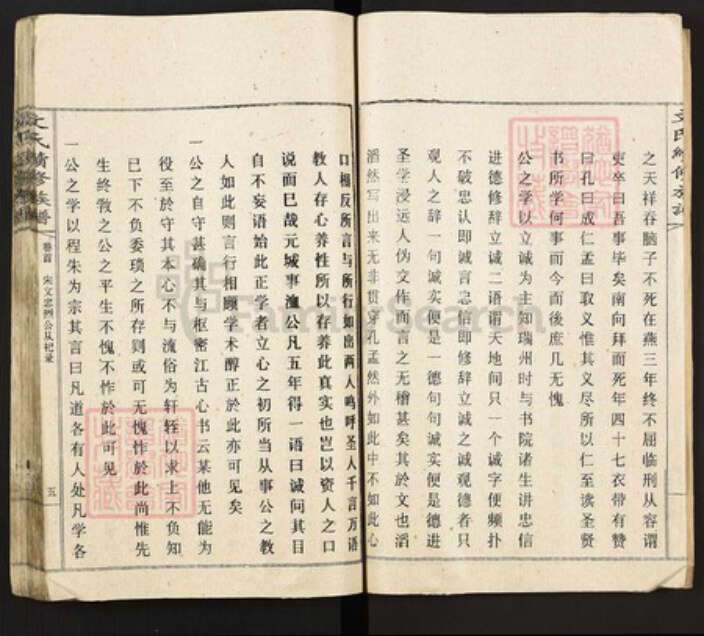 之天祥吞脑子不死在燕三年终不屈临刑从容谓
吏卒曰吾事毕矣南向拜而死年四十七衣带有赞
曰孔曰成仁孟曰取义惟其义尽所以仁至读圣贤
书所学何事而今而後庶几无愧
公之学以立诚为主知瑞州时与书院诸生讲忠信
进德修辞立诚二语谓天地间只一个诚字便颠扑
不破忠认即诚言忠信即修辞立诚之诚观德者只
观人之辞一句诚实便是一德句句诚实便是德进
圣学浸远人伪交作而言之无稽甚矣其於文也滔
滔然写出来无非贯穿孔孟然外如此中不如此心
口相反所言与所行如出两人呜呼圣人千言万语
教人存心养性所以存养此真实也岂以资人之口
说而巳哉元城事溫公凡五年得一语曰诚问其目
自不妄语始此正学者立心之初所当从事公之教
人如此则言行相顾学术醇正於此亦可见矣
一公之自守甚确其与枢密江古心书云某他无能为
役至於守其本心不与流俗为轩轾以求上不负知
已下不负委琐之所存则或可无愧怍於此尚惟先
生终教之公之平生不愧不怍於此可见
一公之学以程朱为宗其言曰凡道各有人处凡学各
文氏續修族譜
卷首 宋文忠烈公从祀录
五
Family Search